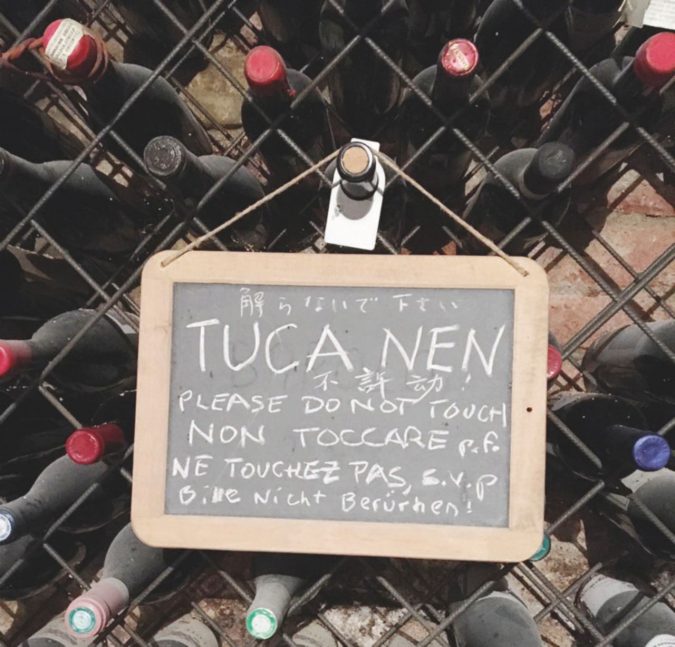 解らないで下さい
TUCA NEN
不許动!
PLEASE DO NOT TOUCH
NON TOCCARE p.f.
NE TOUCHEZ PAS, s.v.p
Bitte Nicht Berürhen!